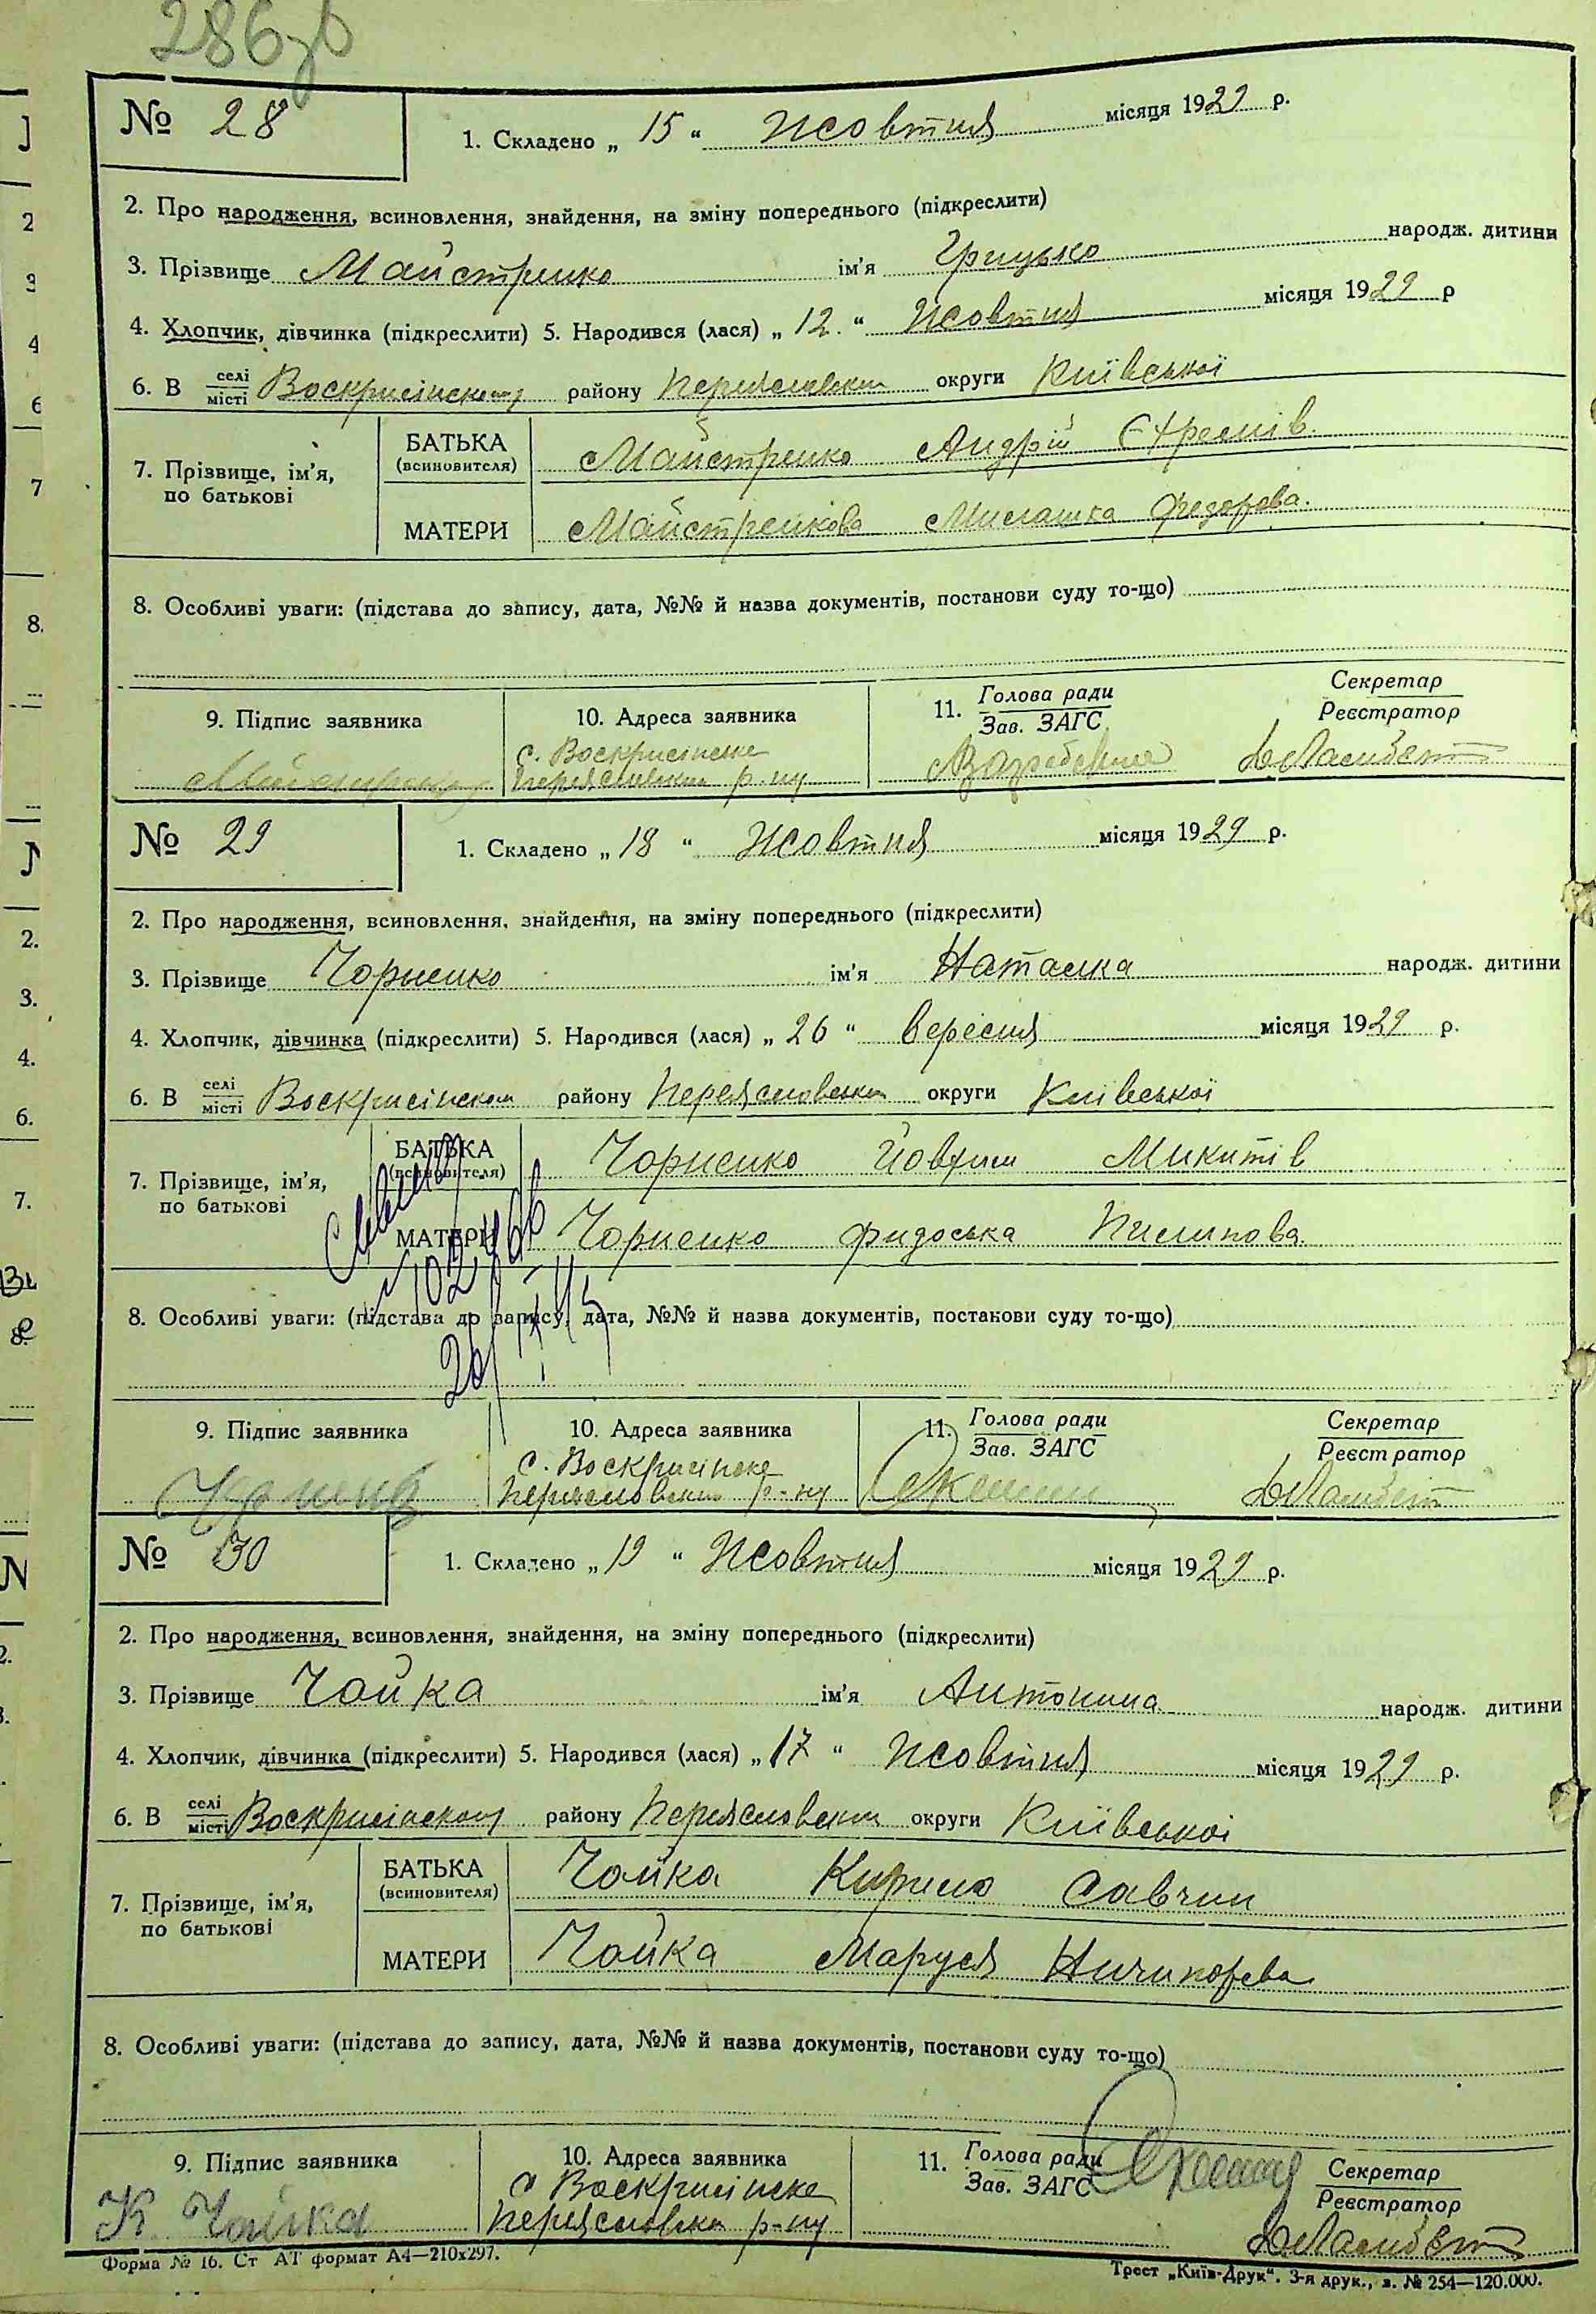 286зв
№ 28
1. Складено „ 15 “ Жовтня місяця 1929 р.
2. Про народження, всиновлення, знайдення, на зміну попереднього (підкреслити)
3. Прізвище Майстренко ім'я Грицько народж. дитини
4. Хлопчик, дівчинка (підкреслити) 5. Народився (лася) „ 12. “ Жовтня місяця 1929 р
6. В селі місті Воскрисінському району Переяславськ округи Київської
7. Прізвище, ім'я, по батькові
БАТЬКА (всиновителя) Майстренко Андрій Єфремів.
МАТЕРИ Майстренкова Милашка Федорова.
8. Особливі уваги: (підстава до запису, дата, №№ й назва документів, постанови суду то-що)
9. Підпис заявника
10. Адреса заявника
с. Воскрисінське
Переяславськ р-ну
11. Голова ради
Зав. ЗАГС
Секретар
Реєстратор
№ 29
1. Складено „ 18 “ Жовтня місяця 1929 р.
2. Про народження, всиновлення, знайдення, на зміну попереднього (підкреслити)
3. Прізвище Чорненко ім'я Наталка народж. дитини
4. Хлопчик, дівчинка (підкреслити) 5. Народився (лася) „ 26 “ вересня місяця 1929 р.
6. В селі місті Воскрисінськом району Переясловськ округи Київської
7. Прізвище, ім'я, по батькові
БАТЬКА (всиновителя) Чорненко Йовхим Микитів
МАТЕРИ Чорненко Фидоська Пилипова.
8. Особливі уваги: (підстава до запису, дата, №№ й назва документів, постанови суду то-що)
9. Підпис заявника
10. Адреса заявника
с. Воскрисінське
Переясловськ р-ну
11. Голова ради
Зав. ЗАГС
Секретар
Реєстратор
№ 30
1. Складено „ 19 “ Жовтня місяця 1929 р.
2. Про народження, всиновлення, знайдення, на зміну попереднього (підкреслити)
3. Прізвище Чайка ім'я Антонина народж. дитини
4. Хлопчик, дівчинка (підкреслити) 5. Народився (лася) „ 17 “ Жовтня місяця 1929 р.
6. В селі місті Воскрисінському району Переясловськ округи Київської
7. Прізвище, ім'я, по батькові
БАТЬКА (всиновителя) Чайка Кирило Савчин
МАТЕРИ Чайка Маруся Ничипорева
8. Особливі уваги: (підстава до запису, дата, №№ й назва документів, постанови суду то-що)
9. Підпис заявника
К. Чайка
10. Адреса заявника
с Воскрисінське
Переясловськ р-ну
11. Голова ради
Зав. ЗАГС
Секретар
Реєстратор
Форма № 16. Ст АТ формат А4—210х297.
Трест „Київ-Друк“. 3-я друк., з. № 254—120.000.